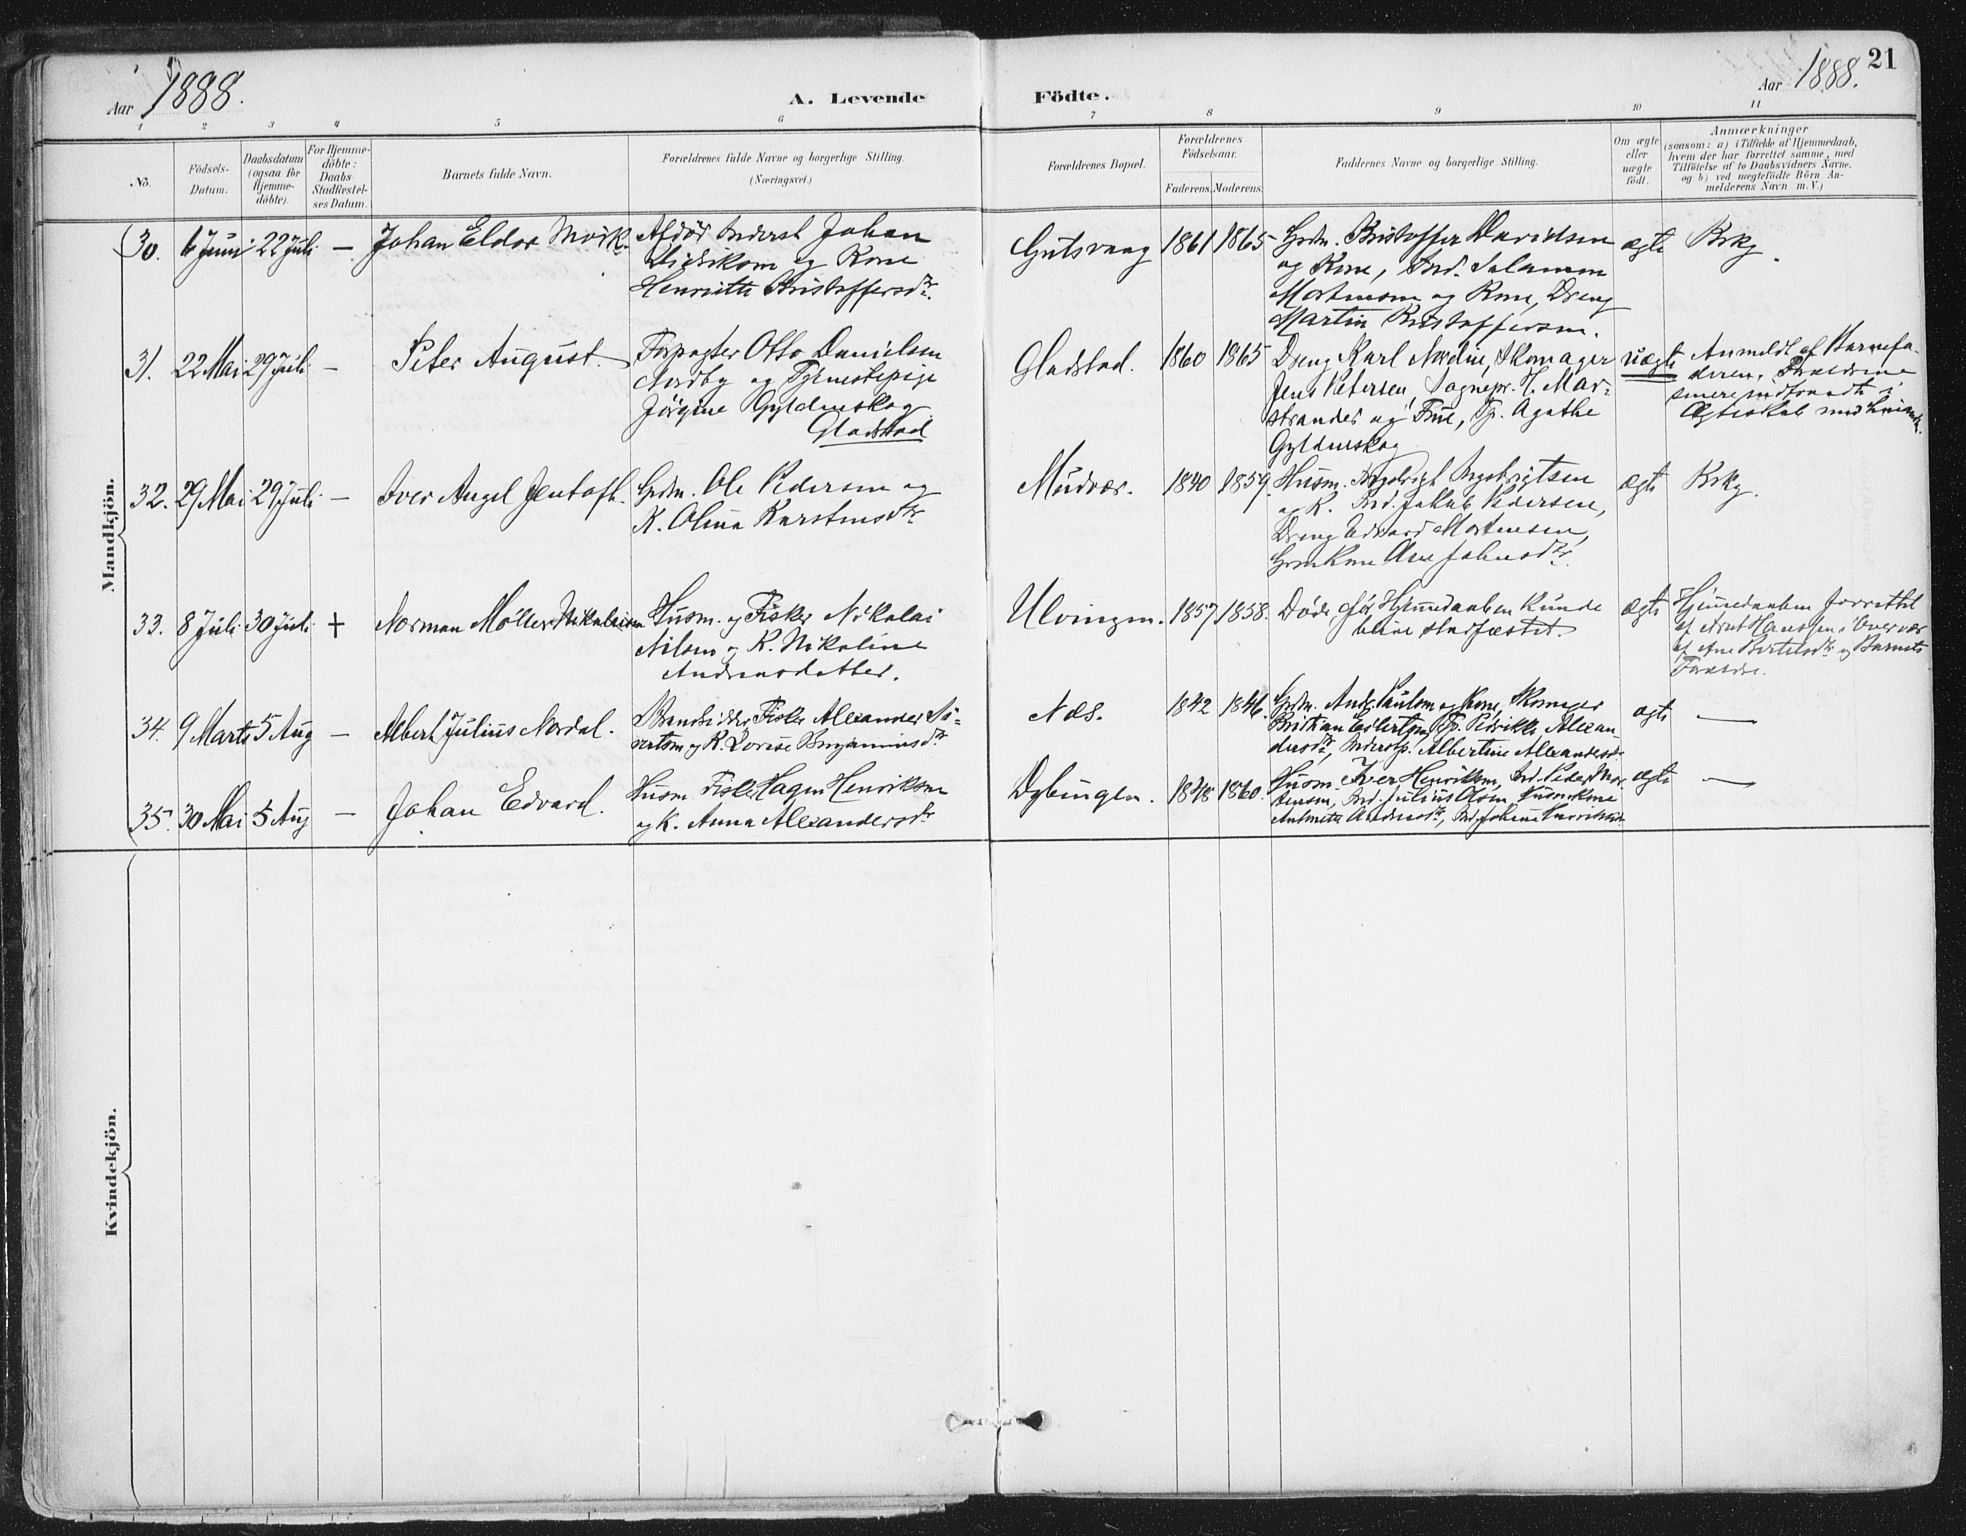 Aar 1888.
A. Levende Födte.
Aar 1888.
21
1 2 3 4 5 6 7 8 9 10 11
No.
Födsels-
Datum.
Daabsdatum
(ogsaa for
Hjemme-
döbte).
For Hjemme-
döbte:
Daabs-
Stadfæstel-
ses Datum.
Barnets fulde Navn.
Forældrenes fulde Navne og borgerlige Stilling.
(Næringsvei.)
Forældrenes Bopæl.
Forældrenes
Födselsaar.
Faderens. Moderens.
Faddernes Navne og borgerlige Stilling.
Om ægte
eller
uægte
födt.
Anmærkninger
(saasom: a) i Tilfælde af Hjemmedaab,
hvem der har forrettet samme, med
Tilföielse af to Daabsvidners Navne,
og b) ved uægtefödte Börn An-
melderens Navn m. V.)
Mandkjön.
30. 6 Juni 22 Juli — Johan Eldor Mörk. Afdød Inderst Johan
Didriksen og Kone
Henriette Kristoffersdtr.
Gutsvaag 1861 1865 Grdm. Kristoffer Davidsen
og Kone, Ind. Salamon
Mortensen og Kone, Dreng
Martin Kristoffersen.
ægte Krkg.
31. 22 Mai 29 Juli — Peter August. Forpagter Otto Danielsen
Nordby og Tjenestepige
Jørgine Gyldenskog
Gladstad
Gladstad. 1860 1865 Dreng Karl Nedine, Skomager
Jens Petersen, Sognepr. H. Mar-
strander og Frue, Tp. Agathe
Gyldenskog
uægte Anmeldt af Barnefa-
deren. Forældrene
senere indtraadt i
Ægteskab med hinanden.
32. 29 Mai 29 Juli — Iver Angel Jentoft. Grdm. Ole Pedersen og
K. Olina Karstensdtr
Mudvær. 1840 1859. Husm. Ingebrigt Ingebrigtsen
og K. Ind. Jakob Pedersen,
Dreng Edvard Mortensen,
Grmkone Ane Johnsdtr.
ægte Krkg.
33. 8 Juli 30 Juli + Norman Möller Nikolaisen Husm. og Fisker Nikolai
Nilsen og K. Nikoline
Andreasdatter.
Ulvingen. 1857 1858. Døde før Hjemmedaaben kunde
blive stadfæstet.
ægte Hjemmedaaben forrettet
af Arnt Hanssen i Overvær
af Ane Bertelsdtr og Barnets
Forældre.
34. 9 Marts 5 Aug — Albert Julius Nordal. Strandsidder Fisker Alexander Si-
vertsen og K. Lovise Benjaminsdtr
Næs. 1842 1846. Grdm. Andr. Paulsen og Kone, Skomager
Kristian Edvertsen, Tp. Pedrikke Alexan-
dersdtr, Inderstp. Albertine Alexandersdtr
ægte —
35. 30 Mai 5 Aug — Johan Edvard. Husm Fisker Hagen Henriksen
og K. Anna Alexandersdtr
Dybingen. 1848 1860. Husm. Iver Henriksen, Ind. Peder Mor-
tensen, Ind. Julius Olsen, Husmkone
Antonette Andersdtr, Ind. Johanna Henriksdtr
ægte —
Kvindekjön.